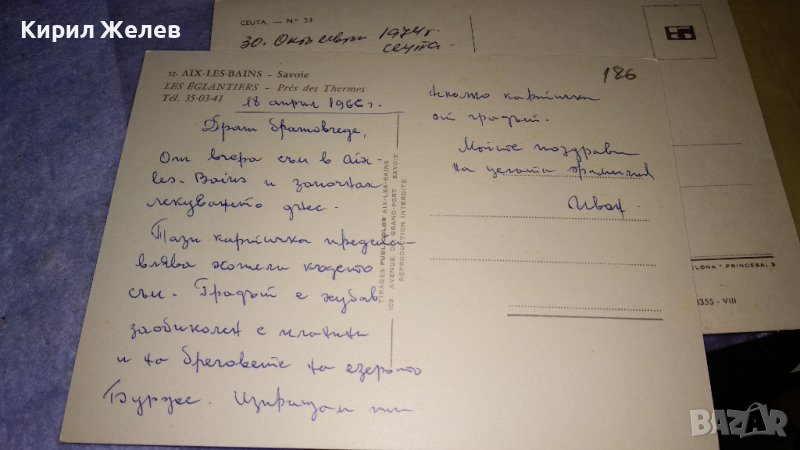 Кирил Желев
CEUTA. — N.º 53
30. Октомври 1974 г.
Сеута.
186
32- AIX-LES-BAINS - Savoie
LES ÉGLANTIERS - Près des Thermes
Tél. 35-03-41
18 април 1966 г.
Драги братовчеде,
От вчера съм в Aix-
les-Bains и започнах
лекуването днес.
Тази картичка предста-
влява хотела където
съм. Градът е хубав
заобиколен с планини
и на бреговете на езерото
Бурже. Изпращам ти
TIRAGES PUBLICOLOR AIX-LES-BAINS
109, AVENUE DU GRAND-PORT SAVOIE
REPRODUCTION INTERDITE
няколко картички
от градът.
Моите поздрави
на цялата фамилия
Иван
ELONA - PRINCESA, 3
1355 - VIII
BAZAR